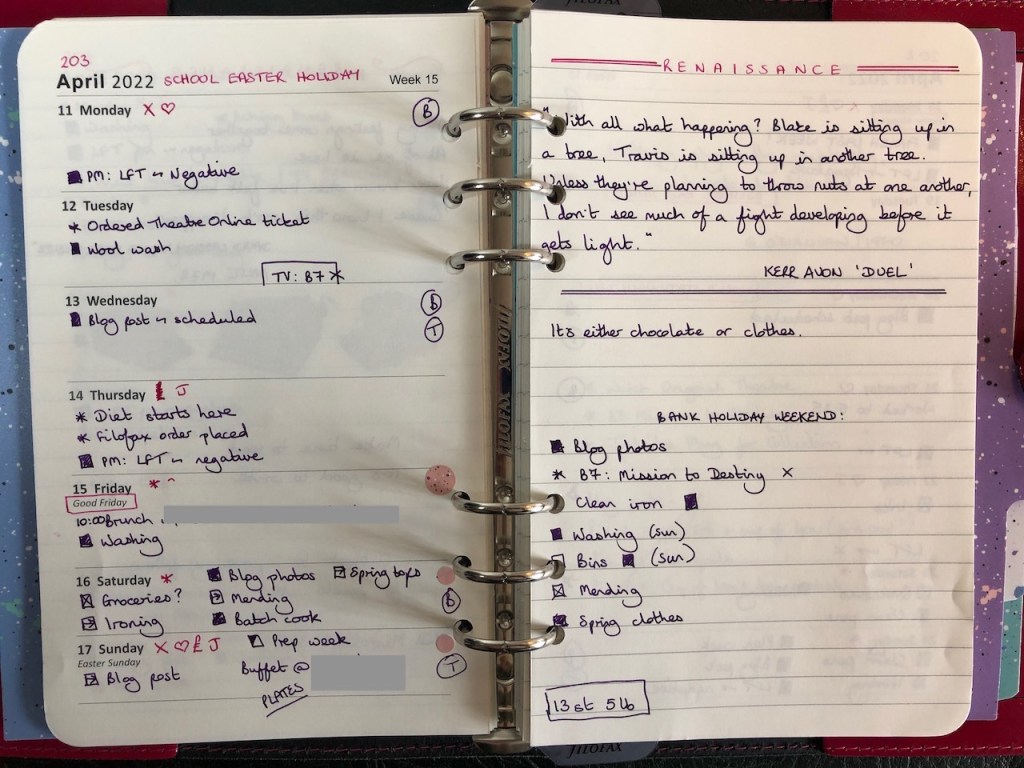 FILOFAX
203
April 2022 SCHOOL EASTER HOLIDAY Week 15
11 Monday X ♡
B
PM: LFT ↳ Negative
12 Tuesday
* Ordered Theatre Online ticket
Wool wash
TV: B7 *
13 Wednesday
B
Blog post ↳ scheduled
T
14 Thursday £ J
* Diet starts here
* Filofax order placed
PM: LFT ↳ negative
15 Friday *
Good Friday
10:00 Brunch
Washing
16 Saturday *
Blog photos
Spring tops
Groceries?
Mending
B
Ironing
Batch cook
17 Sunday X ♡ £ J
Prep week
Easter Sunday
Blog post
Buffet @
T
PLATES
FILOFAX
RENAISSANCE
all what happening? Blake is sitting up in
a tree, Travis is sitting up in another tree.
Unless they're planning to throw nuts at one another,
I don't see much of a fight developing before it
gets light."
KERR AVON 'DUEL'
Its either chocolate or clothes.
BANK HOLIDAY WEEKEND:
Blog photos
* B7: Mission to Destiny X
Clean iron
Washing (Sun)
Bins (Sun)
Mending
Spring clothes
13 st 5 lb
FILOFAX